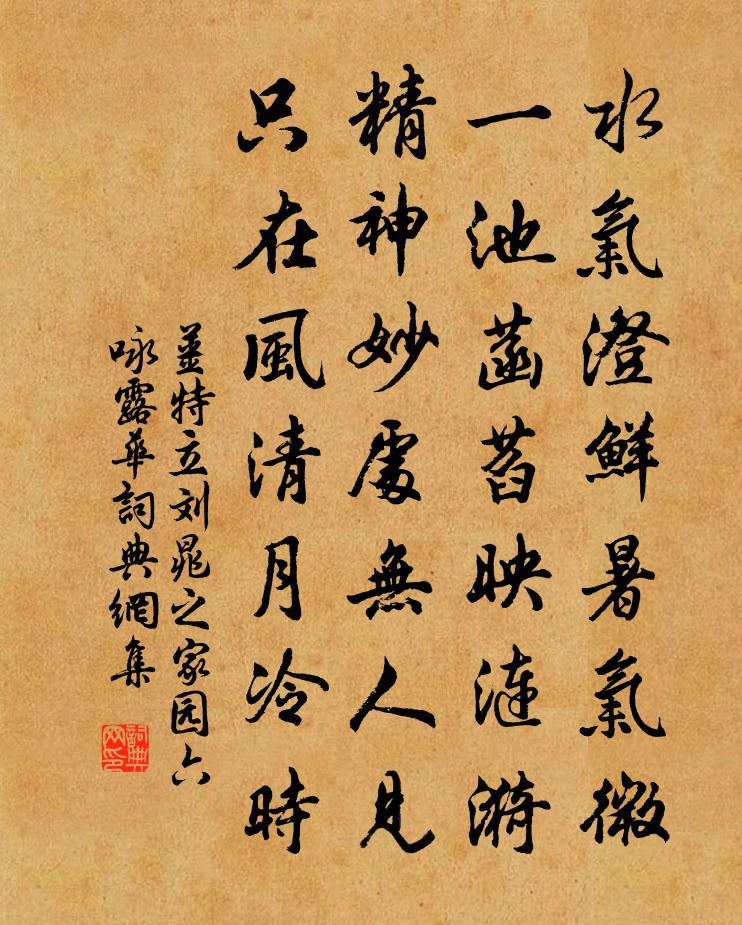 水氣澄鮮暑氣微
一池菡萏映漣漪
精神妙處無人見
只在風清月冷時
姜特立刘晁之家园六
咏露華詞典網集
詞典
网印